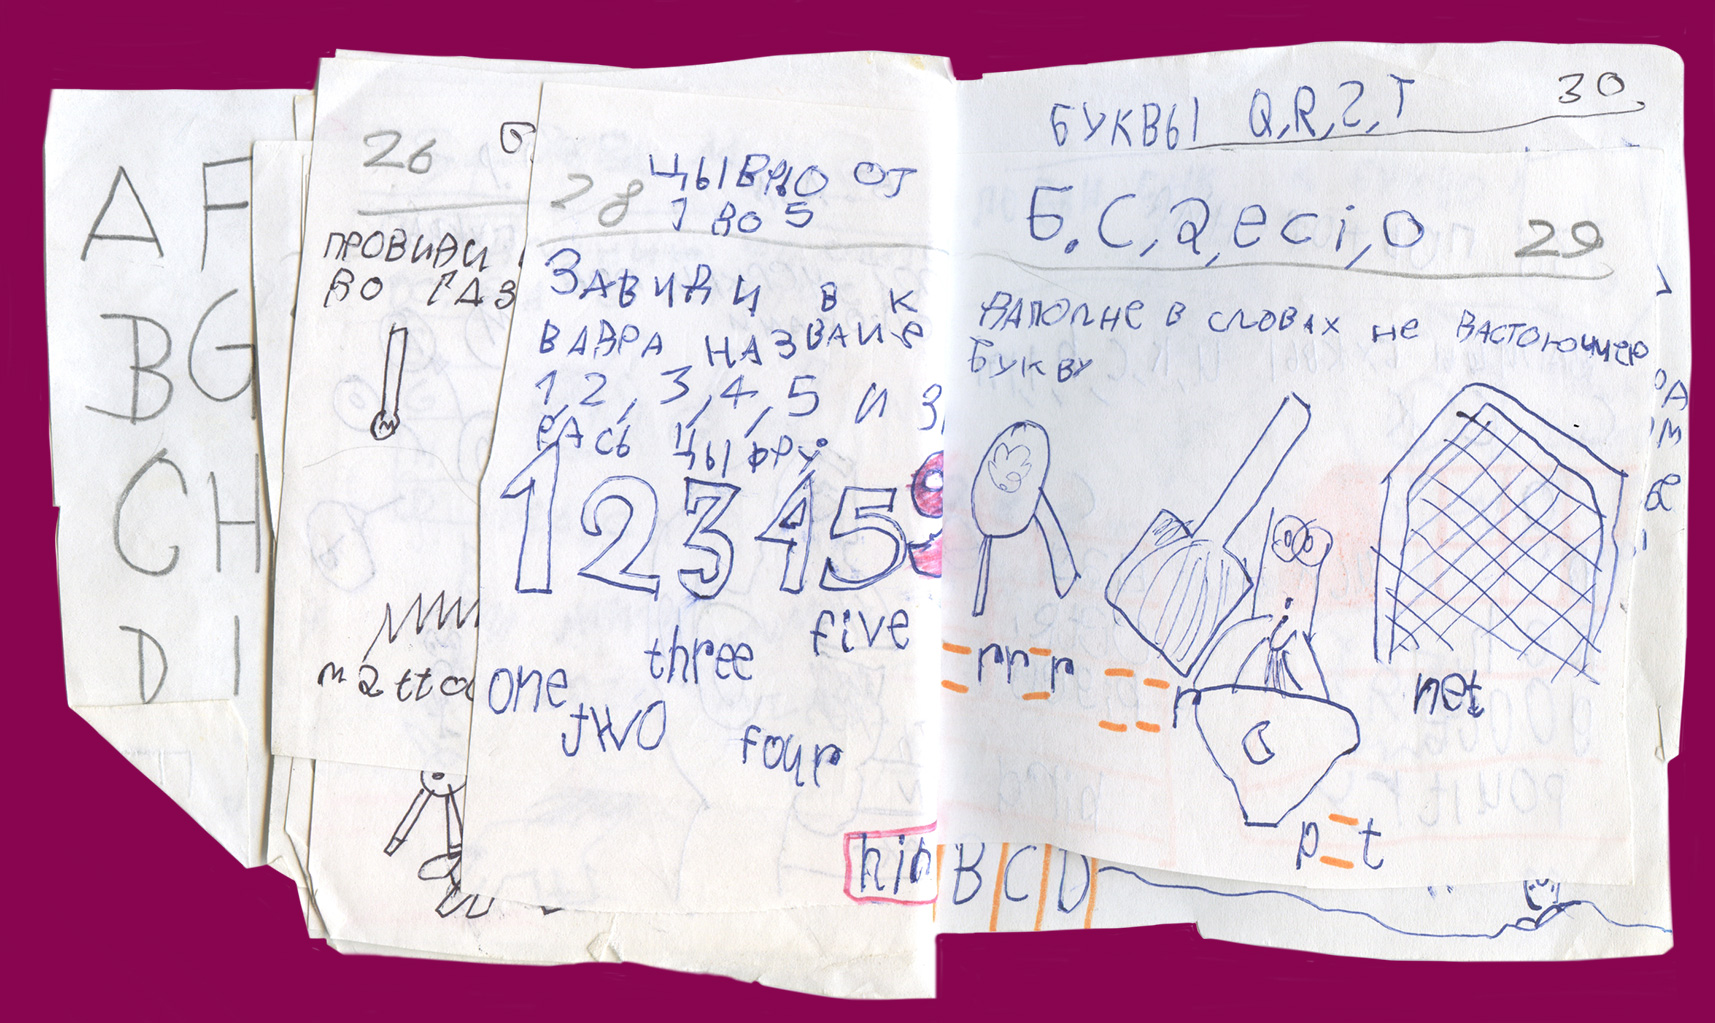 A F
B G
C H
D I
26
ПРОВИДИ
ВО
28 ЦЫВРЮ ОТ
1 ВО 5
ЗАВИДИ В К
ВАВРА НАЗВАИЕ
1, 2, 3, 4, 5 И
РАСЬ ЦЫФРУ
1 2 3 4 5 9
one three five
two four
hin
БУКВЫ Q, R, Z, T 30
Б. C, a, e c i, o 29
ВАПОЛНЕ В СЛОВАХ НЕ ВАСТОЮЩЕЮ
БУКВУ
_rr_r
__r
net
p_t
B C D